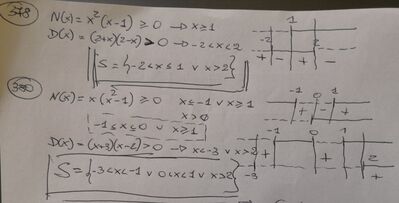 378
N(x) = x²(x-1) ≥ 0 → x ≥ 1
D(x) = (2+x)(2-x) > 0 → -2<x<2
S = {-2<x≤1 ∨ x>2}
1
-2
2
+ - + -
380
N(x) = x(x²-1) ≥ 0 x≤-1 ∨ x≥1
x>0
-1≤x≤0 ∨ x≥1
-1 0 1
- + - +
D(x) = (x+3)(x-2)>0 → x<-3 ∨ x>2
S = {-3<x<-1 ∨ 0<x<1 ∨ x>2}
-1 0 1
+ + 2
-3 +